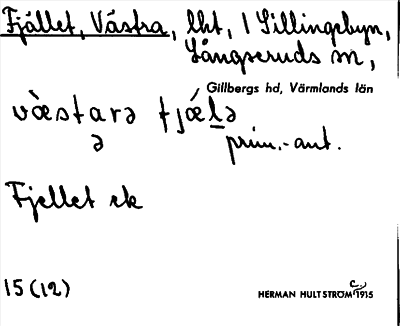 Fjället, Västra, lht, i Sillingsbyn,
Långseruds sn,
Gillbergs hd, Värmlands län
væ̀starə fjǽlə
ə
prim.-aut.
Fjellet rk
15 (12)
HERMAN HULTSTRÖM c. 1915